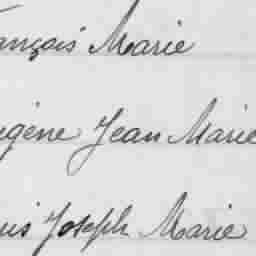 ançois Marie
ugène Jean Marie
uis Joseph Marie